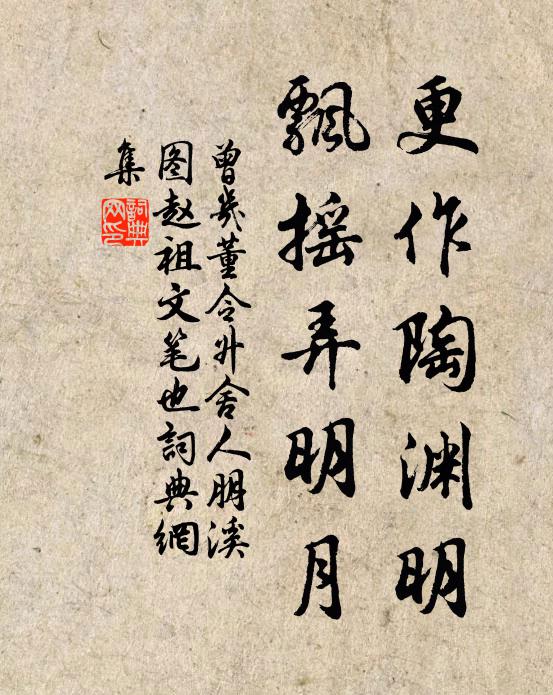 更作陶渊明
飘摇弄明月
曾几董令升舍人朋溪
图赵祖文笔也词典網
集
詞典
网印